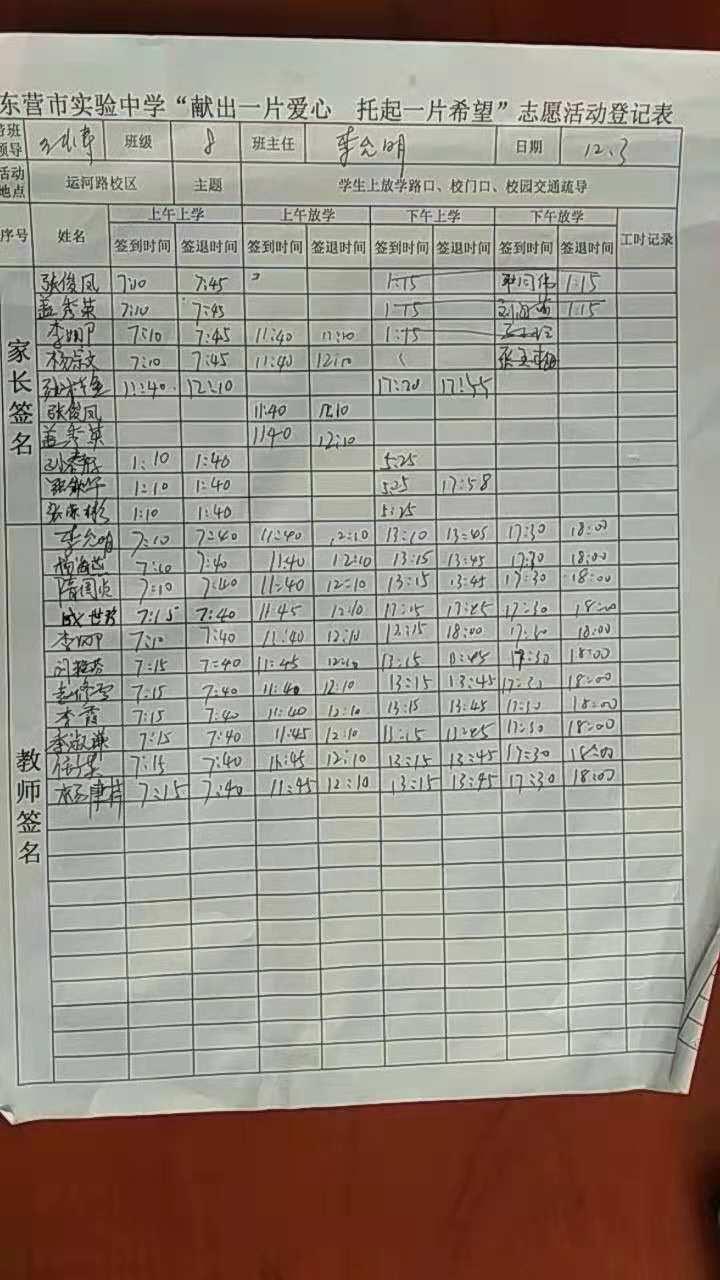 东营市实验中学“献出一片爱心 托起一片希望”志愿活动登记表
领导 班级 8 班主任 李允明 日期 12.3
活动地点 运河路校区 主题 学生上放学路口、校门口、校园交通疏导
序号 姓名 上午上学 上午放学 下午上学 下午放学 工时记录
签到时间 签退时间 签到时间 签退时间 签到时间 签退时间 签到时间 签退时间
家长签名
张俊凤 7:10 7:45 1:15 1:15
盖秀英 7:10 7:45 1:15 1:15
7:10 7:45 11:40 12:10 1:15
杨宗文 7:10 7:45 11:40 12:10
11:40 12:10 17:20 17:55
张俊凤 11:40 12:10
盖秀英 1140 12:10
1:10 1:40 5:25
1:10 1:40 5:25 17:58
1:10 1:40 5:25
教师签名
李允明 7:10 7:40 11:40 12:10 13:10 13:45 17:30 18:00
7:10 7:40 11:40 12:10 13:15 13:45 17:30 18:00
隋国贞 7:10 7:40 11:40 12:10 13:15 13:45 17:30 18:00
7:15 7:40 11:45 12:10 17:30 18:00
7:10 7:40 11:40 12:10 18:00 18:00
7:15 7:40 11:45 12:10 13:15 17:30 18:00
7:15 7:40 11:40 12:10 13:15 13:45 17:30 18:00
李霞 7:15 7:40 11:40 12:10 13:15 13:45 17:30 18:00
李淑谦 7:15 7:40 11:45 12:10 13:15 13:45 17:30 18:00
7:15 7:40 11:45 12:10 13:15 13:45 17:30 18:00
7:15 7:40 11:45 12:10 13:15 13:45 17:30 18:00